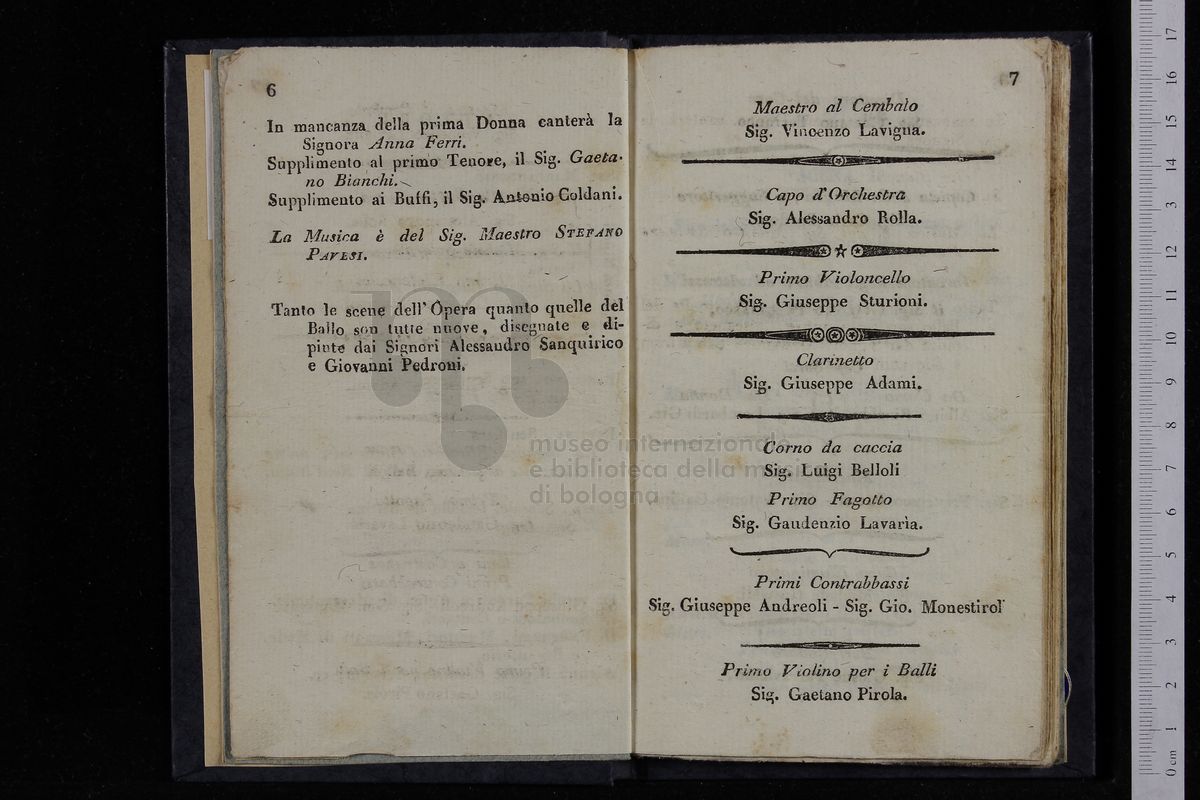 6
In mancanza della prima Donna canterà la
Signora Anna Ferri.
Supplimento al primo Tenore, il Sig. Gaeta-
no Bianchi.
Supplimento ai Buffi, il Sig. Antonio Coldani.
La Musica è del Sig. Maestro STEFANO
PAVESI.
Tanto le scene dell' Opera quanto quelle del
Ballo son tutte nuove, disegnate e di-
pinte dai Signori Alessandro Sanquirico
e Giovanni Pedroni.
7
Maestro al Cembalo
Sig. Vincenzo Lavigna.
Capo d'Orchestra
Sig. Alessandro Rolla.
Primo Violoncello
Sig. Giuseppe Sturioni.
Clarinetto
Sig. Giuseppe Adami.
Corno da caccia
Sig. Luigi Belloli
Primo Fagotto
Sig. Gaudenzio Lavarìa.
Primi Contrabbassi
Sig. Giuseppe Andreoli - Sig. Gio. Monestirol
Primo Violino per i Balli
Sig. Gaetano Pirola.
museo internazionale
e biblioteca della musica
di bologna
0 cm 1 2 3 4 5 6 7 8 9 10 11 12 13 14 15 16 17